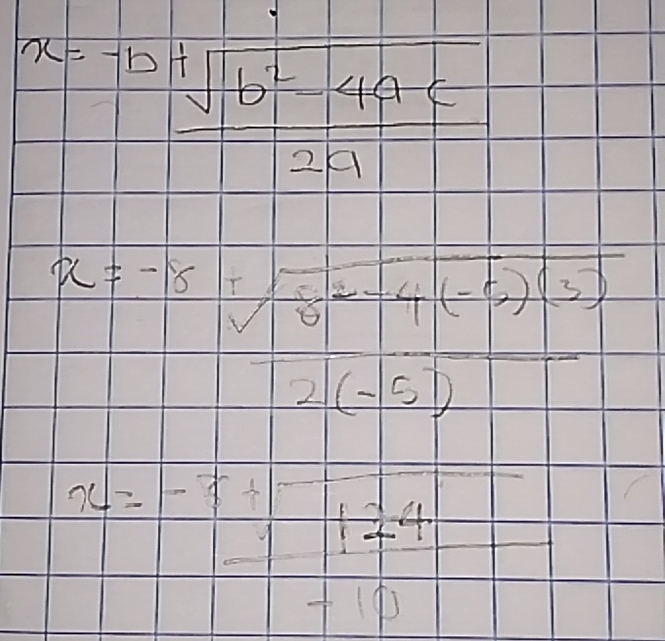 x = -b + √b² - 4ac
2a
x = -8 + √8² - 4(-5)(3)
2(-5)
x = -8 + √124
-10